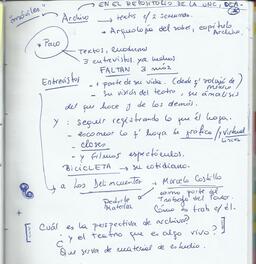 "móviles"
EN EL REPOSITORIO DE LA UNC,
Archivo → textos c/ 2 semanas.
→ Arqueología del saber, capítulo Archivo.
Paco
Textos, cuadernos
3 entrevistas ya hechas
FALTAN 3 más
Entrevistas
- 1 parte de su vida. (desde y
- su visión del teatro, su análisis
del que hace y de los demás.
Y: seguir registrando lo que él haga.
- escaneo lo q' haya gráfico/virtual
- clases
- y filmar espectáculos.
BICICLETA → su cotidiano.
→ a los Delincuentes → Marcelo Castillo
como parte del
Trabajo del Paco.
Cómo lo trab. c/ él.
[ Cuál es la perspectiva de archivo?
¿ y el teatro que es algo vivo? ]
Que sirva de material de estudio.